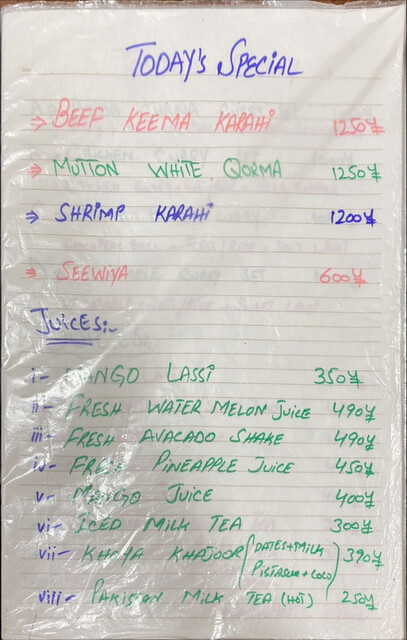 TODAY'S SPECIAL
⇒ BEEF KEEMA KARAHI 1250¥
⇒ MUTTON WHITE QORMA 1250¥
⇒ SHRIMP KARAHI 1200¥
⇒ SEEWIYA 600¥
JUICES:-
i- MANGO LASSI 350¥
ii- FRESH WATER MELON JUICE 490¥
iii- FRESH AVACADO SHAKE 490¥
iv- FRESH PINEAPPLE JUICE 450¥
v- MANGO JUICE 400¥
vi- ICED MILK TEA 300¥
vii- KHAJOOR (DATES+MILK 390¥
PISTASHE+COCO)
viii- PAKISTAN MILK TEA (HOT) 250¥